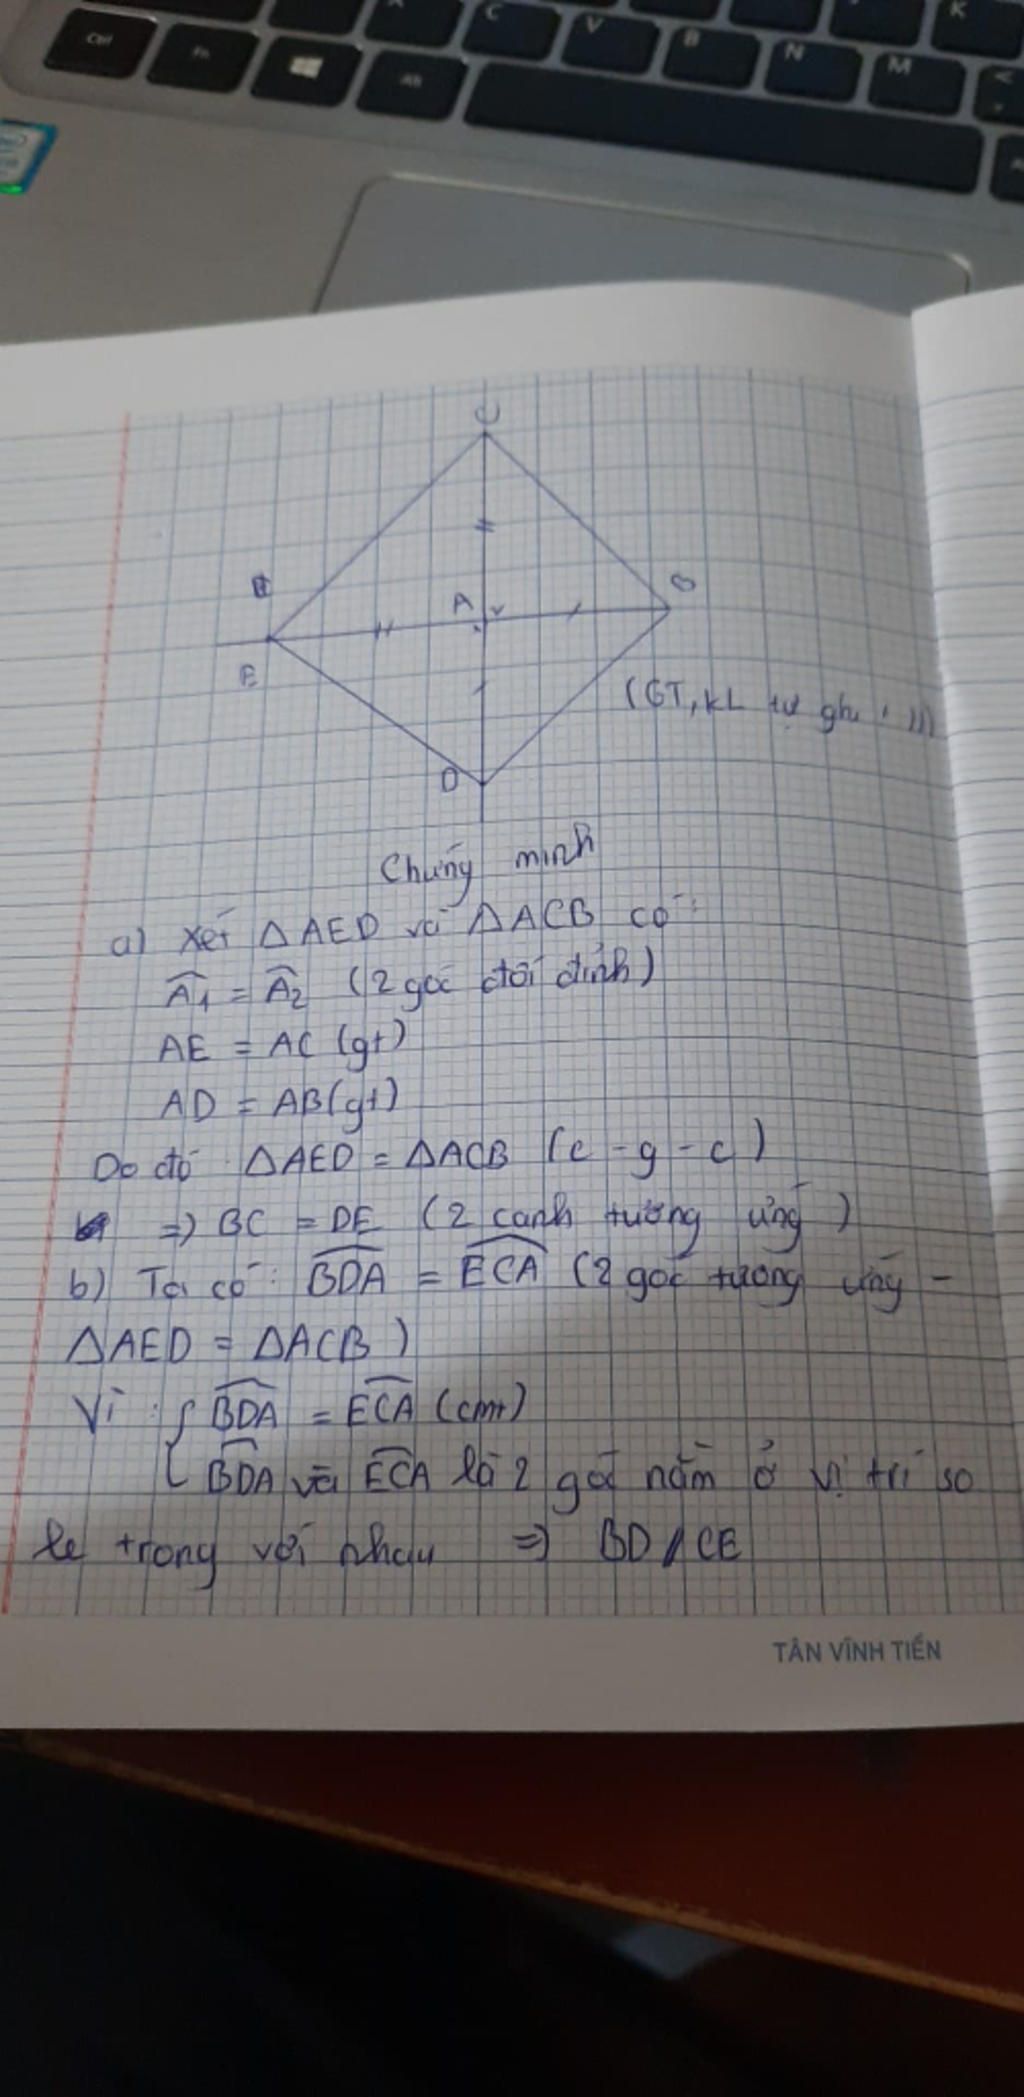 Ctrl
Fn
Alt
C
V
B
N
M
K
<
C
A
B
E
D
(GT, KL tự ghi
Chứng minh
a) Xét ΔAED và ΔACB có:
Â1 = Â2 (2 góc đối đỉnh)
AE = AC (gt)
AD = AB (gt)
Do đó ΔAED = ΔACB (c - g - c)
=> BC = DE (2 cạnh tương ứng)
b) Ta có: BDA = ECA (2 góc tương ứng -
ΔAED = ΔACB)
Vì : { BDA = ECA (cmt)
BDA và ECA là 2 góc nằm ở vị trí so
le trong với nhau => BD // CE
TÂN VĨNH TIẾN